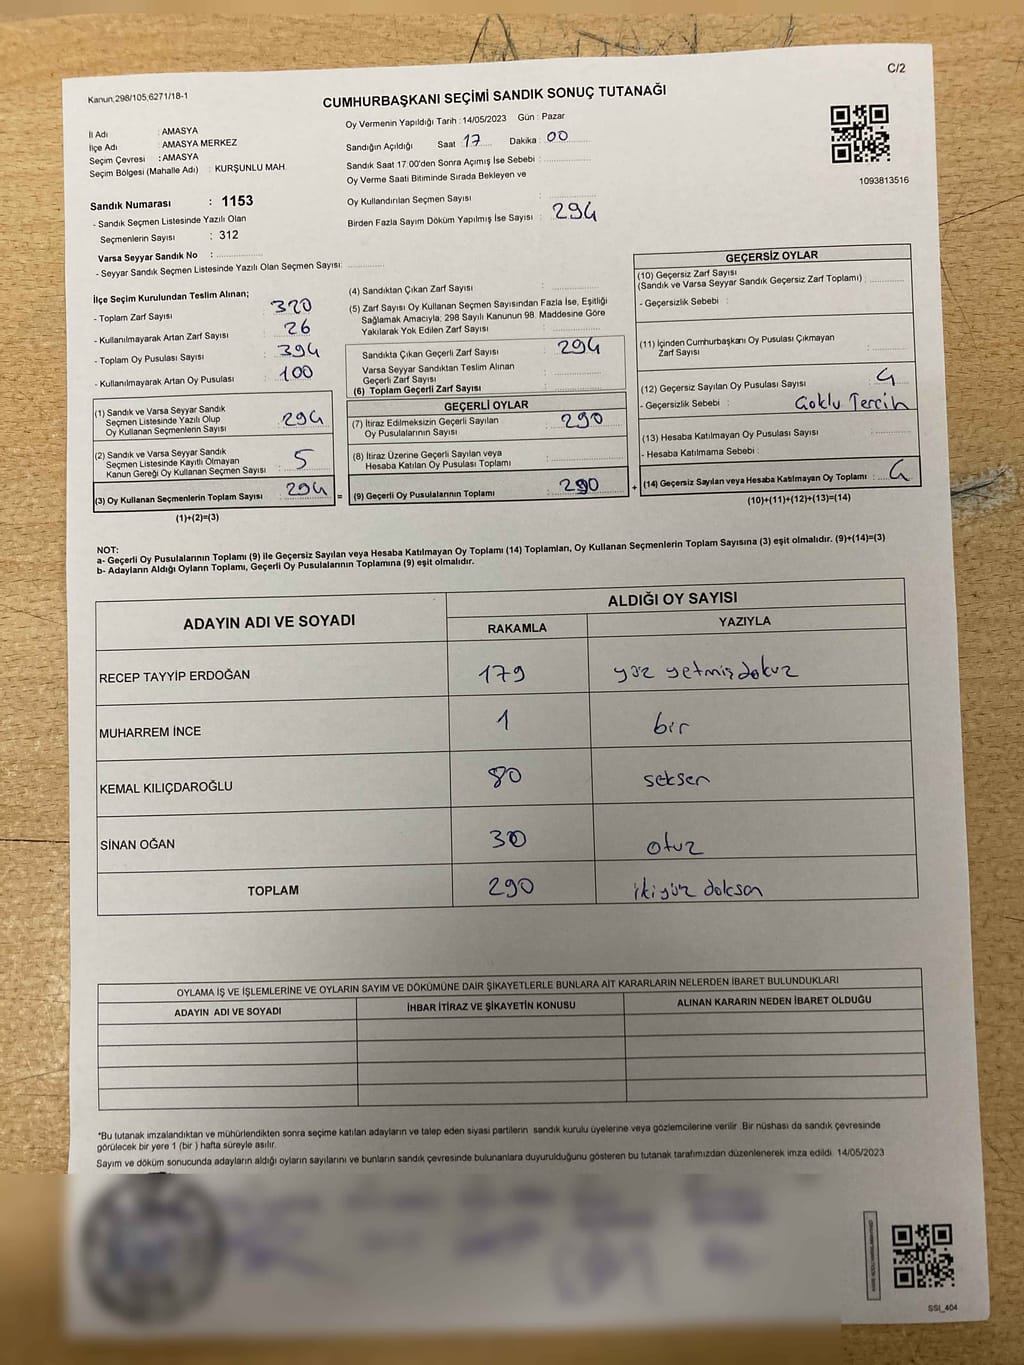 C/2
Kanun,298/105,6271/18-1
CUMHURBAŞKANI SEÇİMİ SANDIK SONUÇ TUTANAĞI
İl Adı : AMASYA
İlçe Adı : AMASYA MERKEZ
Seçim Çevresi : AMASYA
Seçim Bölgesi (Mahalle Adı) : KURŞUNLU MAH.
Oy Vermenin Yapıldığı Tarih : 14/05/2023 Gün : Pazar
Sandığın Açıldığı Saat : 17 Dakika : 00
Sandık Saat 17.00'den Sonra Açımış İse Sebebi :
Oy Verme Saati Bitiminde Sırada Bekleyen ve
Oy Kullandırılan Seçmen Sayısı :
Birden Fazla Sayım Döküm Yapılmış İse Sayısı : 294
1093813516
Sandık Numarası : 1153
- Sandık Seçmen Listesinde Yazılı Olan
Seçmenlerin Sayısı : 312
Varsa Seyyar Sandık No :
- Seyyar Sandık Seçmen Listesinde Yazılı Olan Seçmen Sayısı:
İlçe Seçim Kurulundan Teslim Alınan;
- Toplam Zarf Sayısı : 320
- Kullanılmayarak Artan Zarf Sayısı : 26
- Toplam Oy Pusulası Sayısı : 394
- Kullanılmayarak Artan Oy Pusulası : 100
(1) Sandık ve Varsa Seyyar Sandık
Seçmen Listesinde Yazılı Olup
Oy Kullanan Seçmenlerin Sayısı : 294
(2) Sandık ve Varsa Seyyar Sandık
Seçmen Listesinde Kayıtlı Olmayan
Kanun Gereği Oy Kullanan Seçmen Sayısı : 5
(3) Oy Kullanan Seçmenlerin Toplam Sayısı : 294 =
(1)+(2)=(3)
(4) Sandıktan Çıkan Zarf Sayısı :
(5) Zarf Sayısı Oy Kullanan Seçmen Sayısından Fazla İse, Eşitliği
Sağlamak Amacıyla, 298 Sayılı Kanunun 98. Maddesine Göre
Yakılarak Yok Edilen Zarf Sayısı :
Sandıkta Çıkan Geçerli Zarf Sayısı : 294
Varsa Seyyar Sandıktan Teslim Alınan
Geçerli Zarf Sayısı :
(6) Toplam Geçerli Zarf Sayısı :
GEÇERLİ OYLAR
(7) İtiraz Edilmeksizin Geçerli Sayılan
Oy Pusulalarının Sayısı : 290
(8) İtiraz Üzerine Geçerli Sayılan veya
Hesaba Katılan Oy Pusulası Toplamı :
(9) Geçerli Oy Pusulalarının Toplamı : 290 +
GEÇERSİZ OYLAR
(10) Geçersiz Zarf Sayısı
(Sandık ve Varsa Seyyar Sandık Geçersiz Zarf Toplamı) :
- Geçersizlik Sebebi :
(11) İçinden Cumhurbaşkanı Oy Pusulası Çıkmayan
Zarf Sayısı :
(12) Geçersiz Sayılan Oy Pusulası Sayısı : 4
- Geçersizlik Sebebi : Çoklu Tercih
(13) Hesaba Katılmayan Oy Pusulası Sayısı :
- Hesaba Katılmama Sebebi :
(14) Geçersiz Sayılan veya Hesaba Katılmayan Oy Toplamı : 4
(10)+(11)+(12)+(13)=(14)
NOT:
a- Geçerli Oy Pusulalarının Toplamı (9) ile Geçersiz Sayılan veya Hesaba Katılmayan Oy Toplamı (14) Toplamları, Oy Kullanan Seçmenlerin Toplam Sayısına (3) eşit olmalıdır. (9)+(14)=(3)
b- Adayların Aldığı Oyların Toplamı, Geçerli Oy Pusulalarının Toplamına (9) eşit olmalıdır.
ADAYIN ADI VE SOYADI ALDIĞI OY SAYISI
RAKAMLA YAZIYLA
RECEP TAYYİP ERDOĞAN 179 yüz yetmiş dokuz
MUHARREM İNCE 1 bir
KEMAL KILIÇDAROĞLU 80 seksen
SİNAN OĞAN 30 otuz
TOPLAM 290 ikiyüz doksan
OYLAMA İŞ VE İŞLEMLERİNE VE OYLARIN SAYIM VE DÖKÜMÜNE DAİR ŞİKAYETLERLE BUNLARA AİT KARARLARIN NELERDEN İBARET BULUNDUKLARI
ADAYIN ADI VE SOYADI İHBAR İTİRAZ VE ŞİKAYETİN KONUSU ALINAN KARARIN NEDEN İBARET OLDUĞU
*Bu tutanak imzalandıktan ve mühürlendikten sonra seçime katılan adayların ve talep eden siyasi partilerin sandık kurulu üyelerine veya gözlemcilerine verilir. Bir nüshası da sandık çevresinde
görülecek bir yere 1 (bir ) hafta süreyle asılır.
Sayım ve döküm sonucunda adayların aldığı oyların sayılarını ve bunların sandık çevresinde bulunanlara duyurulduğunu gösteren bu tutanak tarafımızdan düzenlenerek imza edildi. 14/05/2023
SSI_404